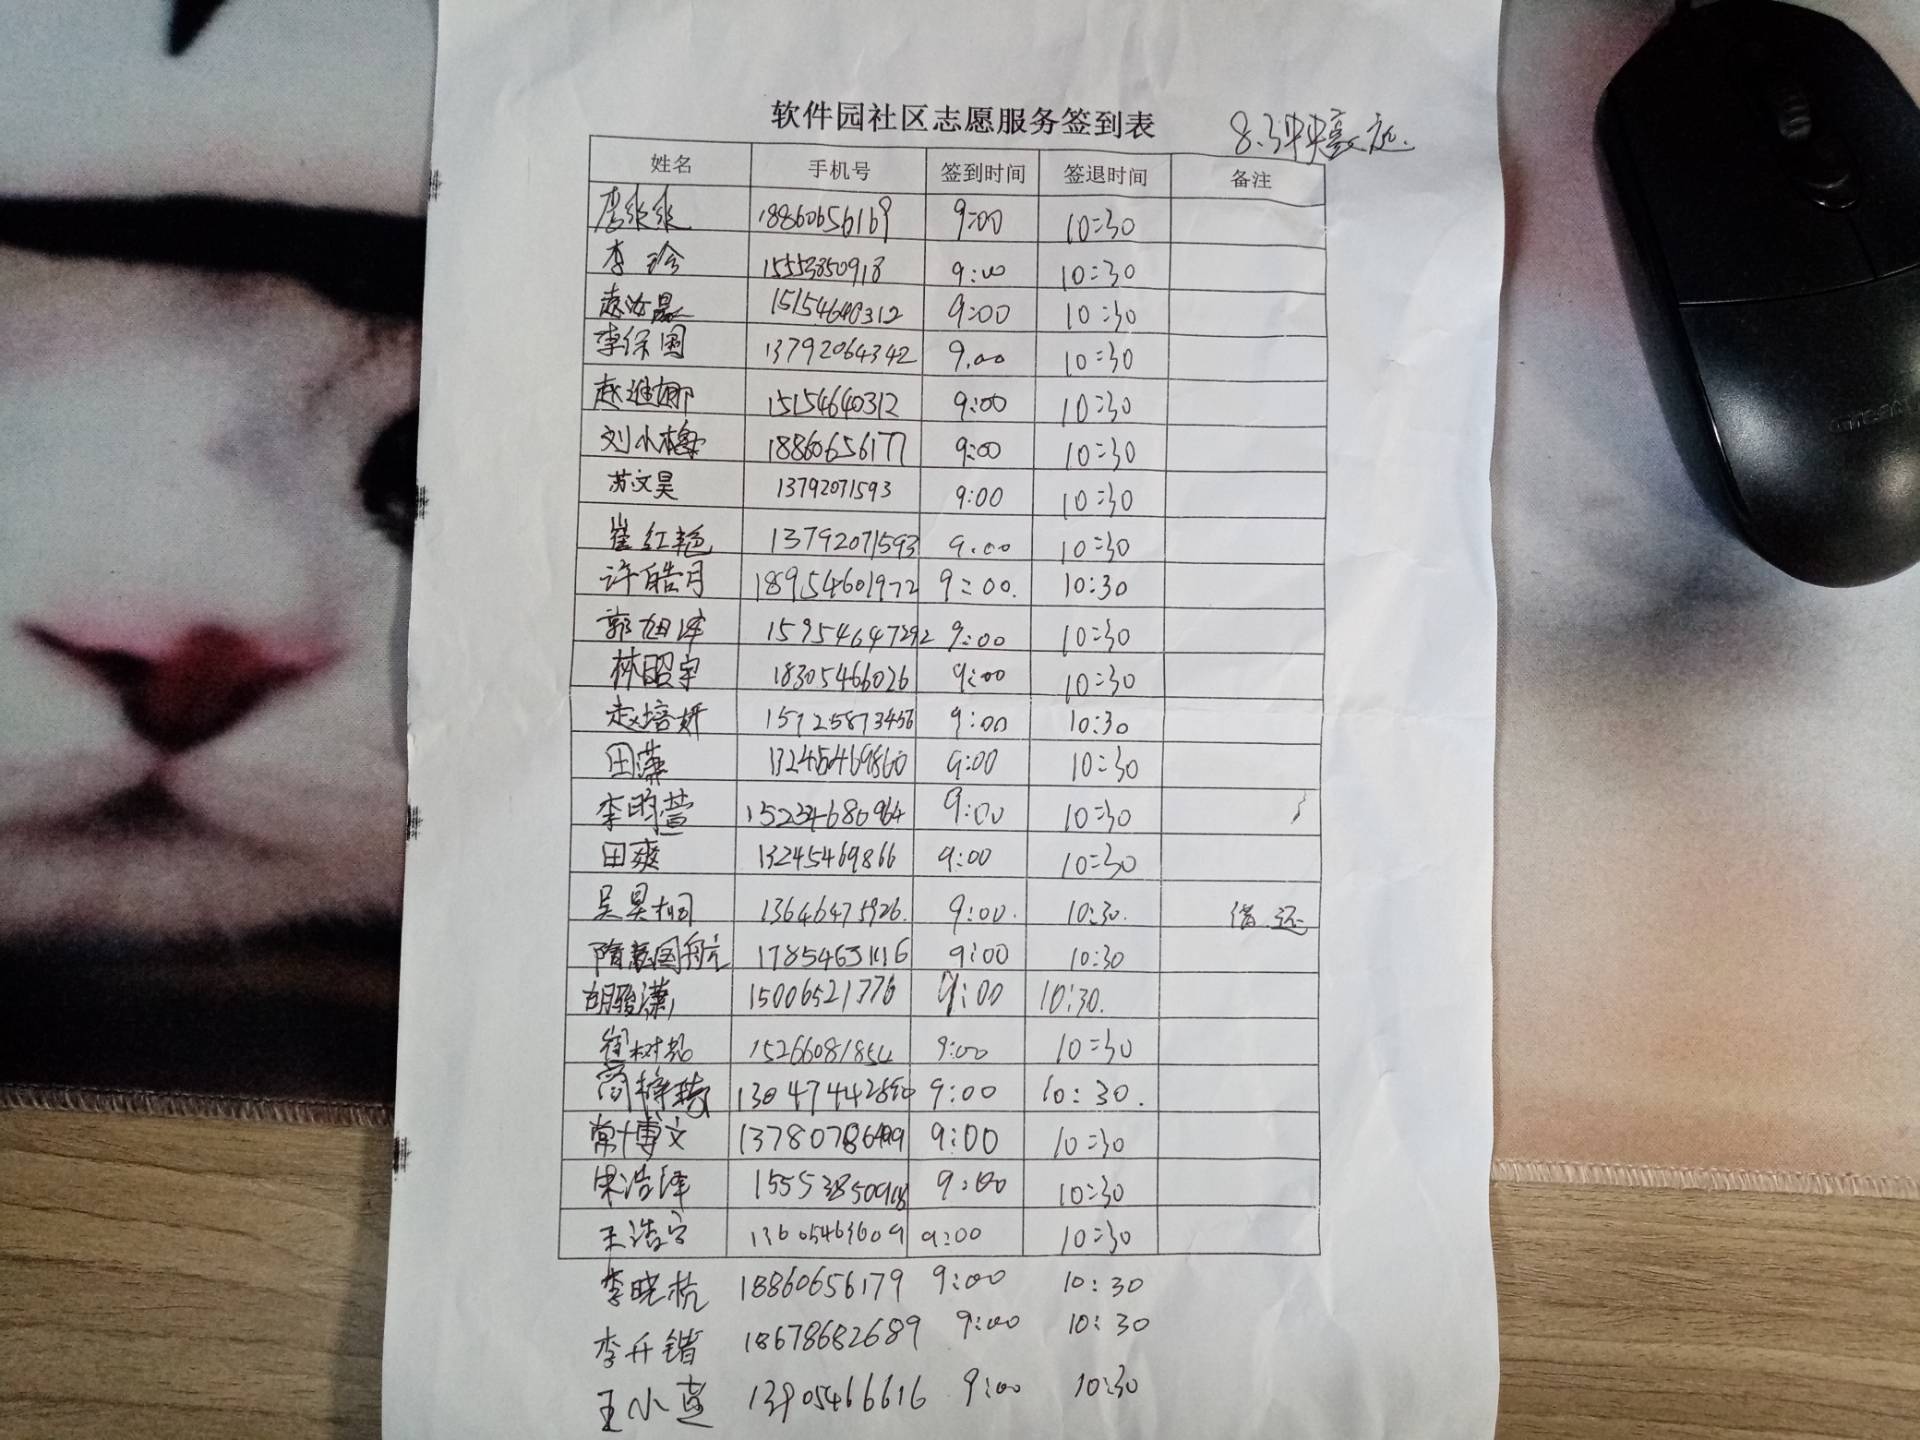 软件园社区志愿服务签到表
8.3中央豪庭.
姓名 手机号 签到时间 签退时间 备注
18860656169 9:00 10:30
李珍 15553850918 9:00 10:30
15154640312 9:00 10:30
李保国 13792064342 9.00 10:30
15154640312 9:00 10:30
刘小梅 18860656177 9:00 10:30
苏文昊 13792071593 9:00 10:30
崔红艳 13792071593 9.00 10:30
许皓月 18954601972 9:00. 10:30
郭旭泽 15954647292 9:00 10:30
林昭宇 18305466026 9:00 10:30
赵培妍 9:00 10:30
田藻 9:00 10:30
李昀萱 9:00 10:30
田爽 13245469866 9:00 10:30
吴昊桐 13646475926. 9:00. 10:30.
隋意国航 9:00 10:30
胡骏潇 15006521776 9:00 10:30.
15266081854 9:00 10:30
9:00 10:30.
常博文 9:00 10:30
宋浩泽 15553850918 9:00 10:30
王浩宇 13605463609 9:00 10:30
李晓杭 18860656179 9:00 10:30
李升锴 18678682689 9:00 10:30
王小燕 13905466616 9:00 10:30